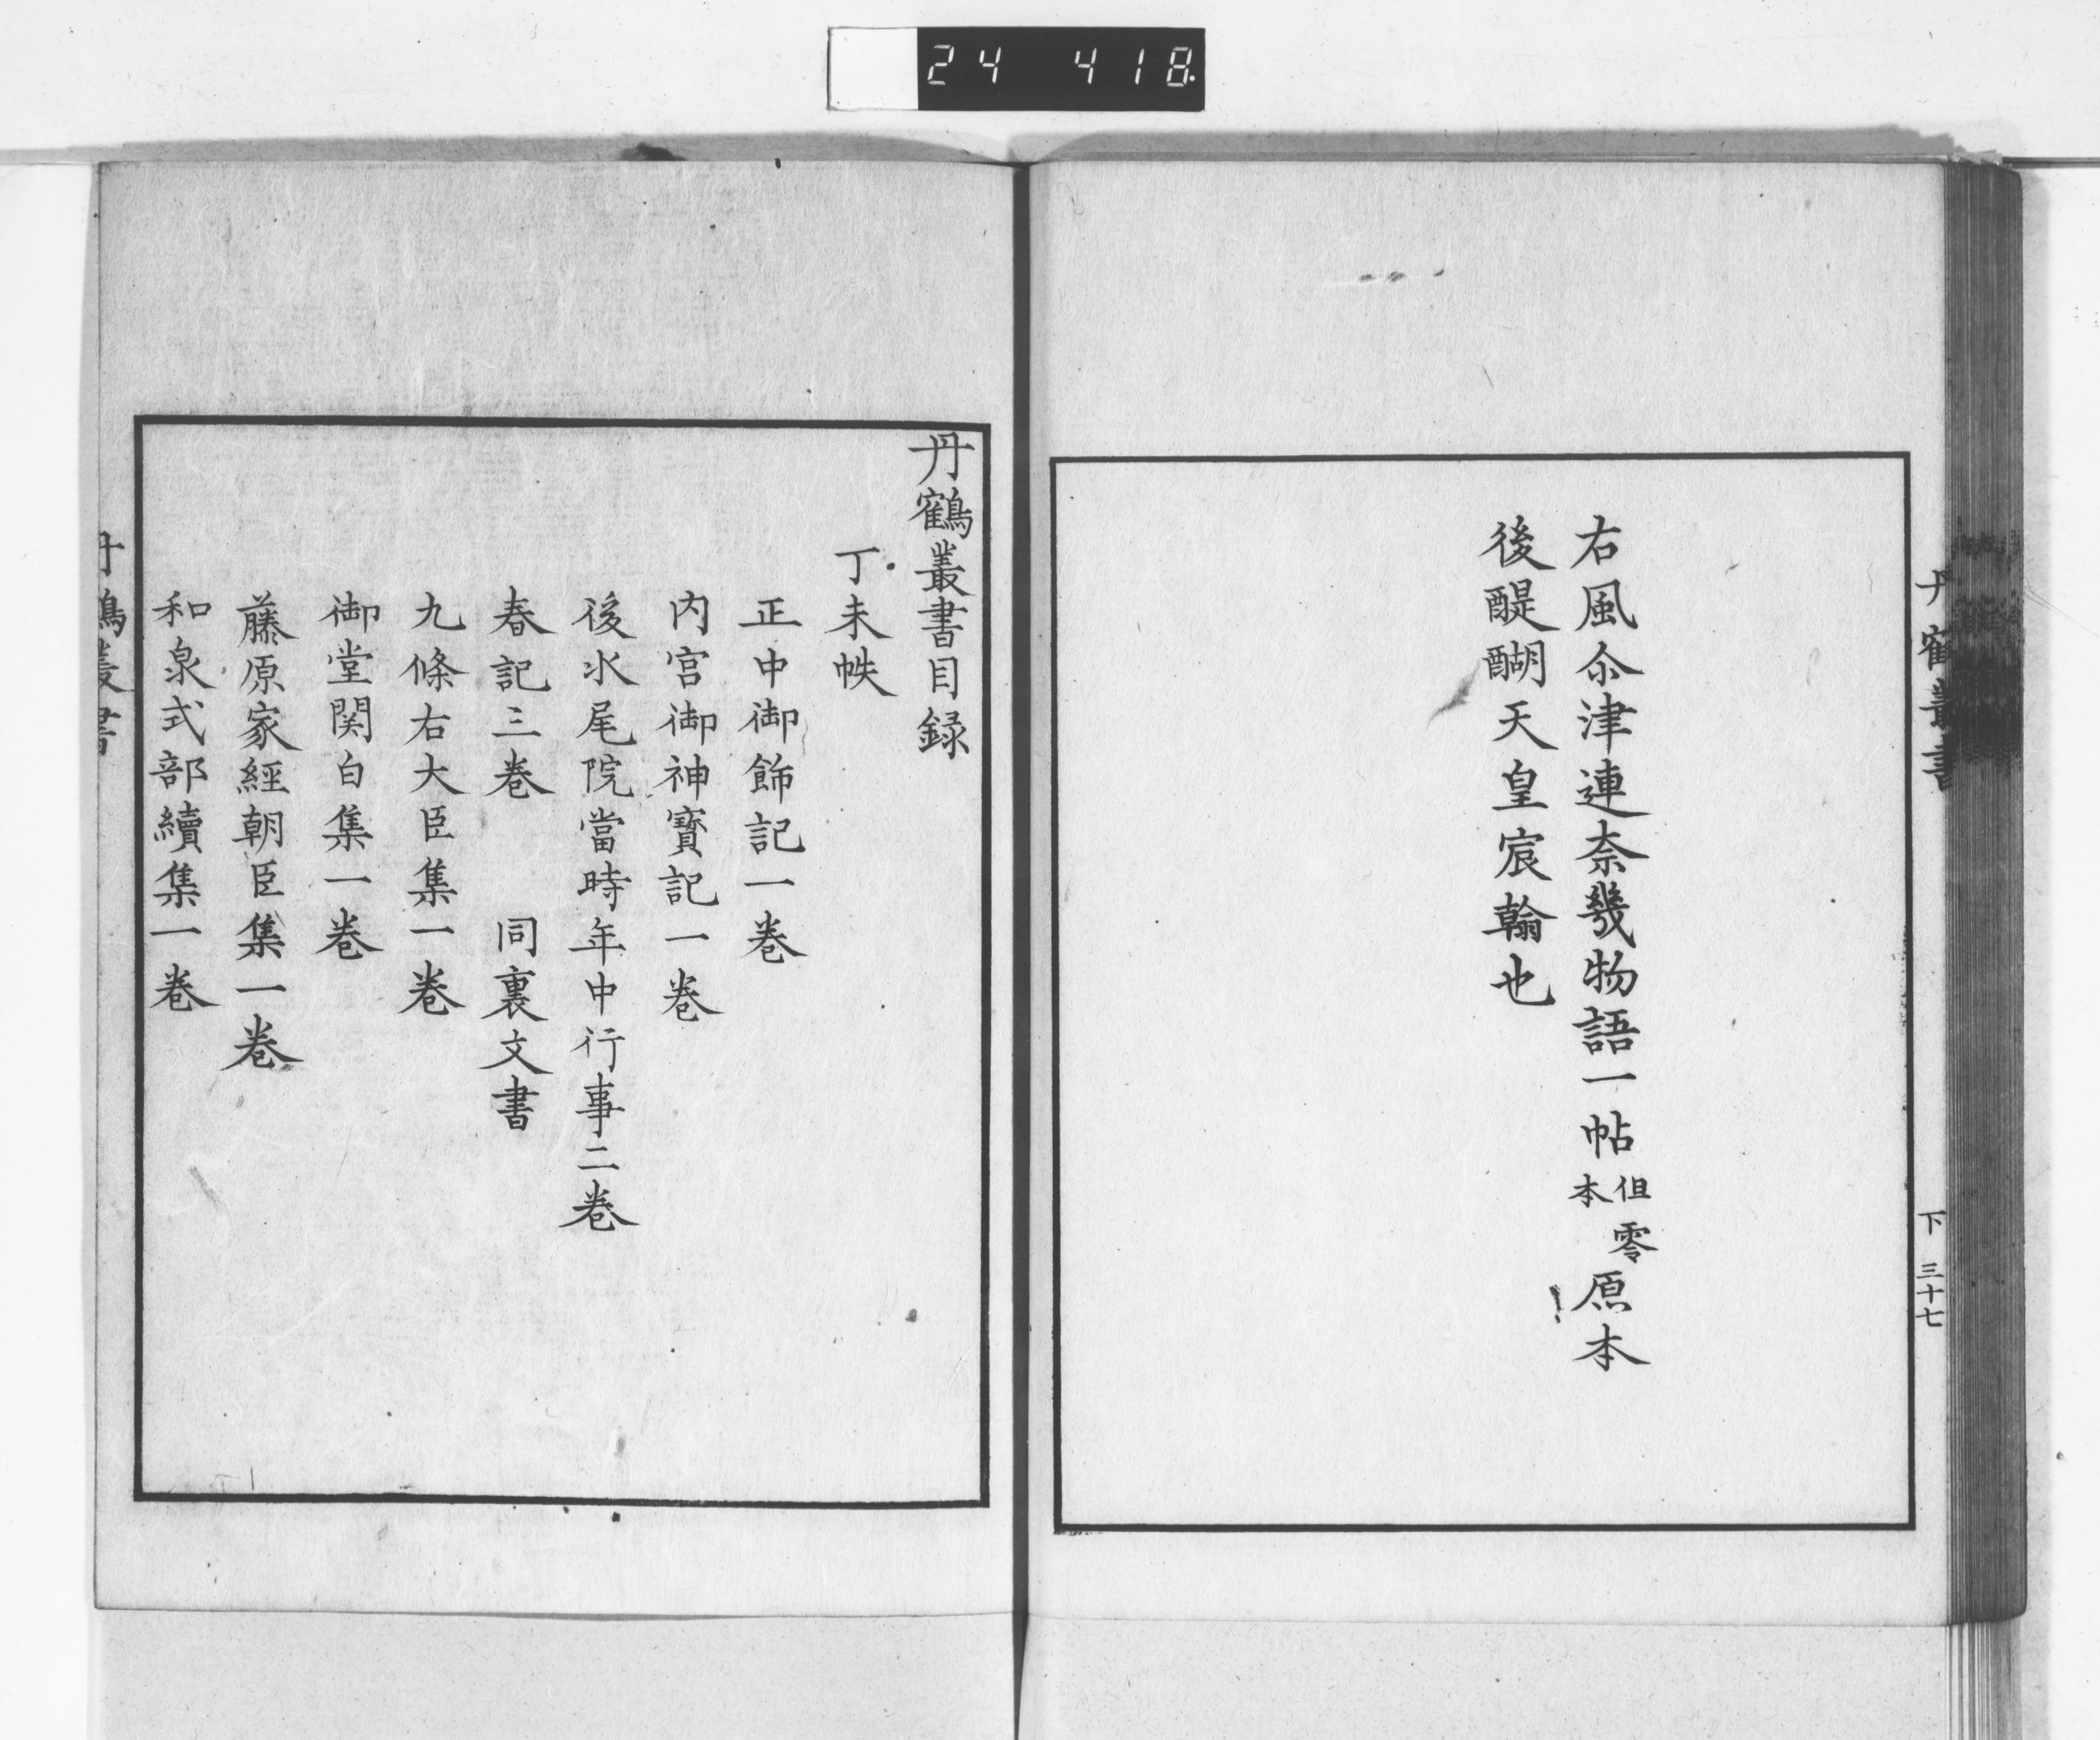 24 418.
丹鶴叢書
下 三十七
右風尒津連奈幾物語一帖但零本原本
後醍醐天皇宸翰也
丹鶴叢書目録
丁未帙
正中御飾記一巻
内宮御神寶記一巻
後水尾院當時年中行事二巻
春記三巻 同裏文書
九條右大臣集一巻
御堂関白集一巻
藤原家經朝臣集一巻
和泉式部續集一巻
丹鶴叢書